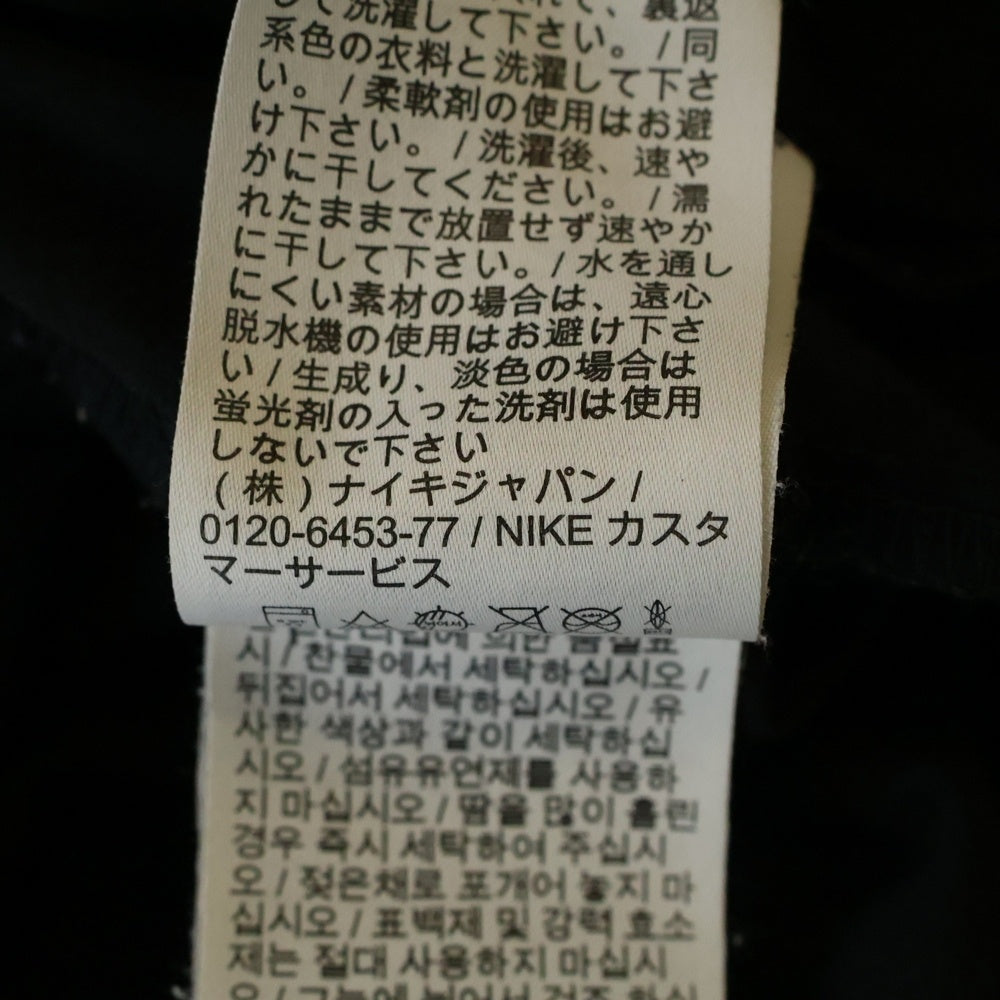 て洗濯して下さい。/同
系色の衣料と洗濯して下さ
い。/柔軟剤の使用はお避
け下さい。/洗濯後、速や
かに干してください。/濡
れたままで放置せず速やか
に干して下さい。/水を通し
にくい素材の場合は、遠心
脱水機の使用はお避け下さ
い/生成り、淡色の場合は
蛍光剤の入った洗剤は使用
しないで下さい
(株)ナイキジャパン/
0120-6453-77 / NIKE カスタ
マーサービス
시/찬물에서 세탁하십시오/
뒤집어서 세탁하십시오/유
사한 색상과 같이 세탁하십
시오/섬유유연제를 사용하
지 마십시오/땀을 많이 흘린
경우 즉시 세탁하여 주십시
오/젖은채로 포개어 놓지 마
십시오/표백제 및 강력 효소
제는 절대 사용하지 마십시